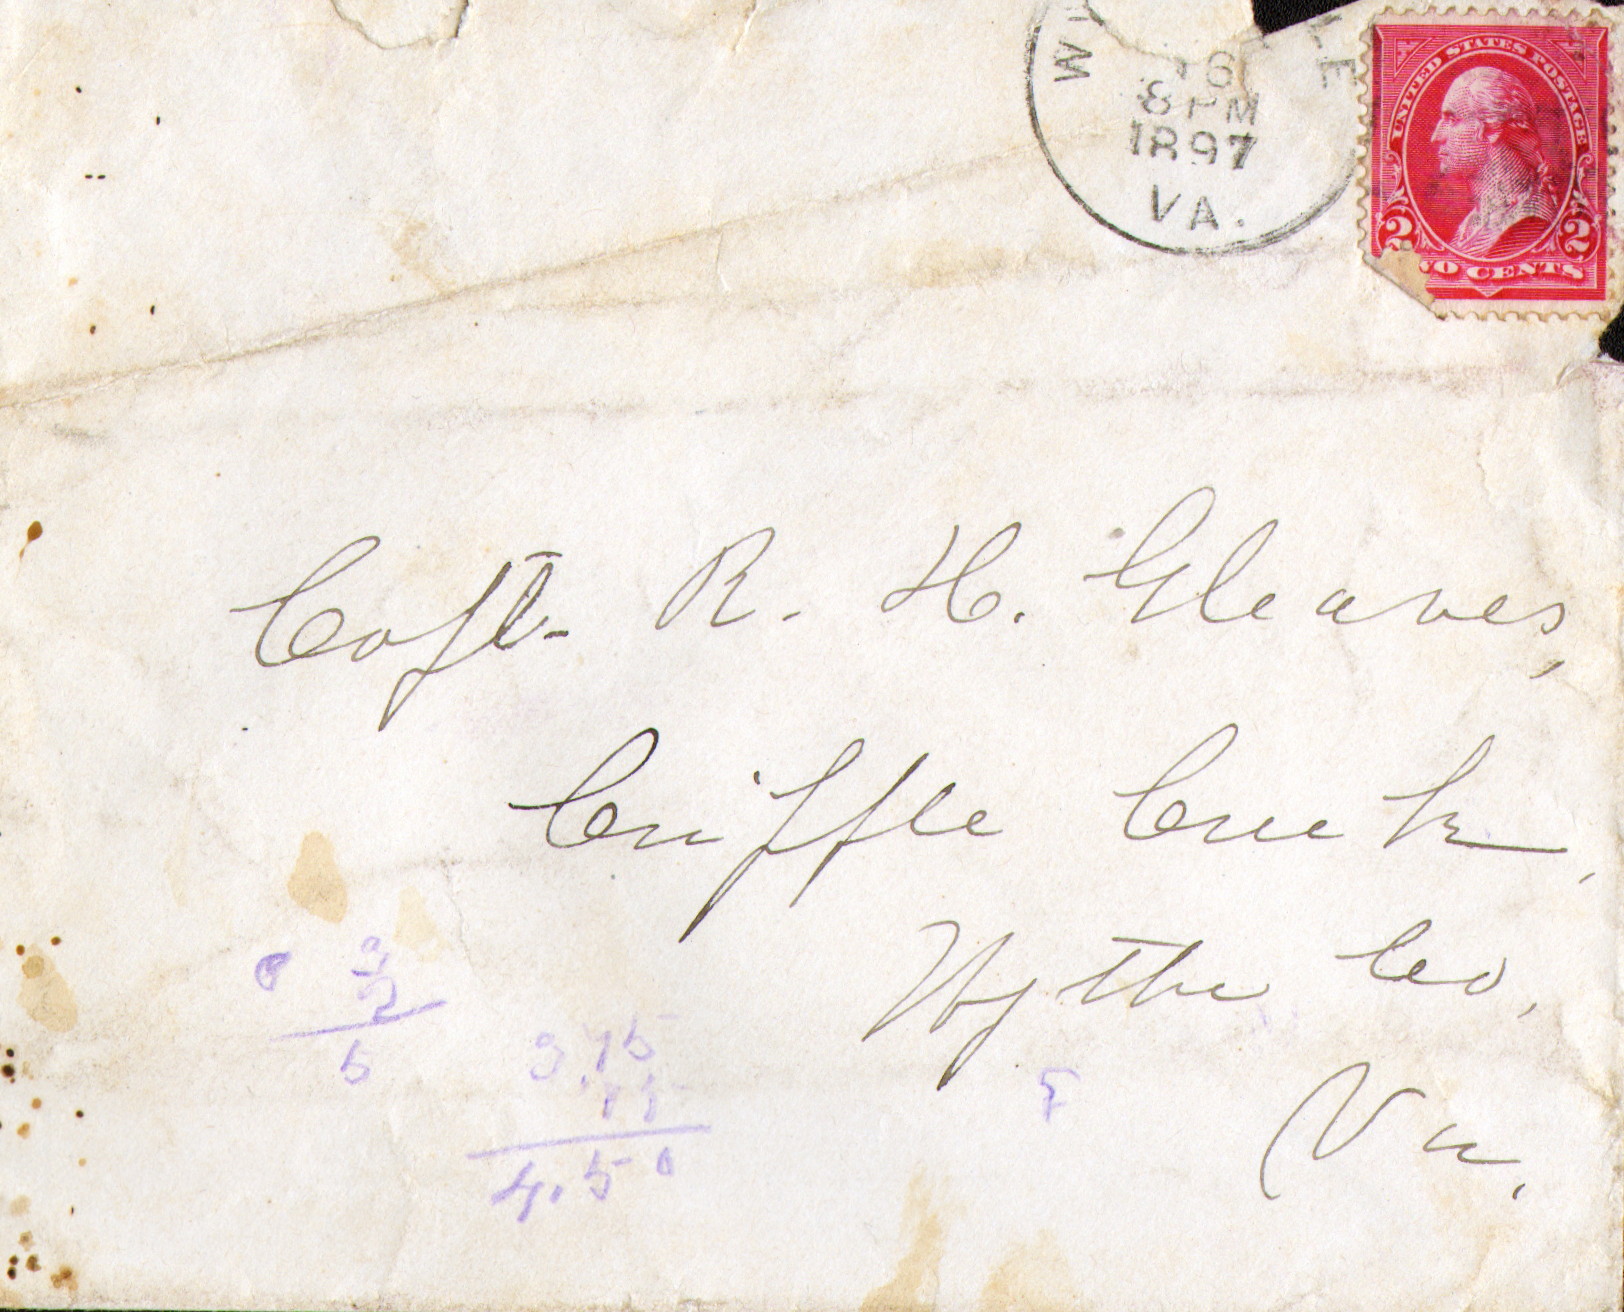 8 PM
1897
VA.
UNITED STATES POSTAGE
2 2
O CENTS
Capt. R. H. Gleaves,
Cripple Creek,
Wythe Co,
Va.
3
2
5
3.75
4.50